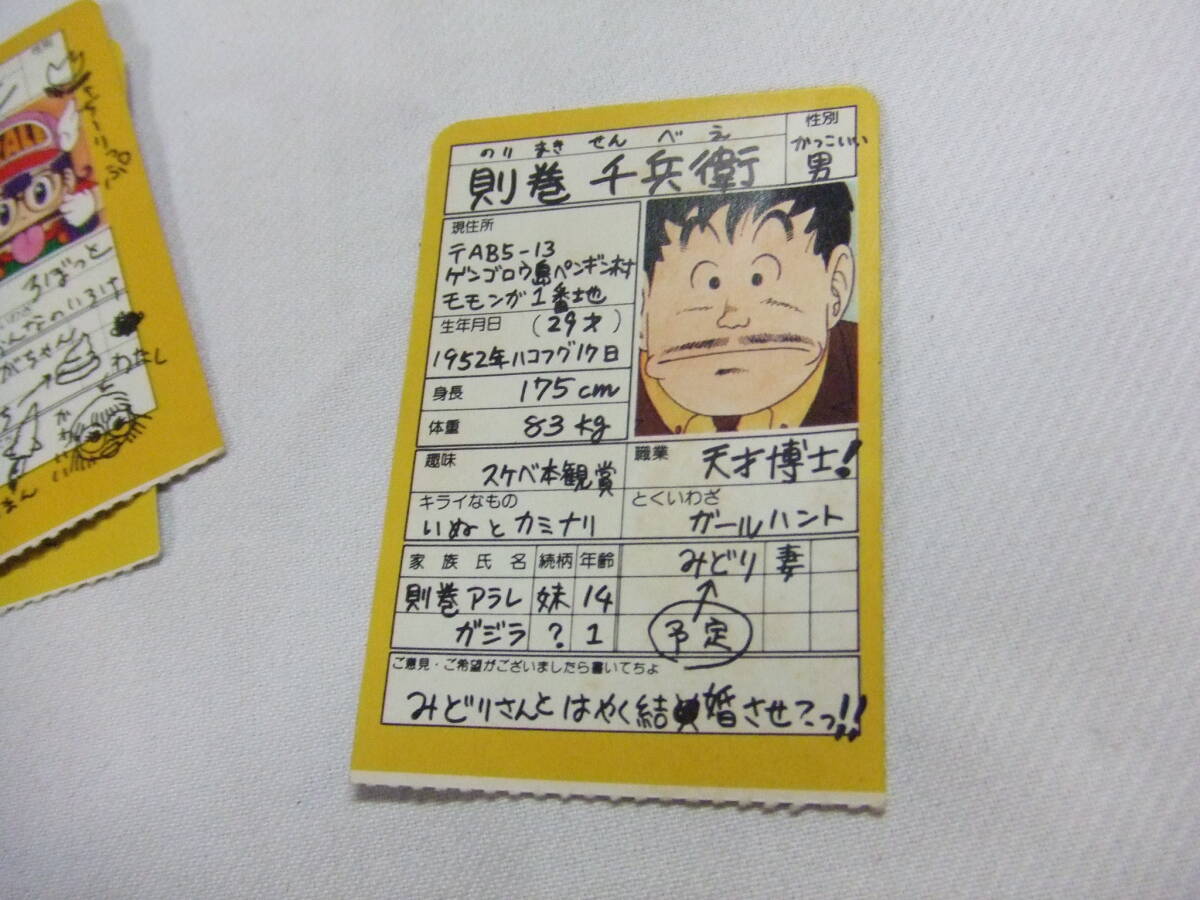 のりまきせんべえ
則巻 千兵衛
性別
かっこいい
男
現住所
〒AB5-13
ゲンゴロウ島ペンギン村
モモンガ1番地
生年月日 (29才)
1952年ハコフグ17日
身長 175cm
体重 83kg
趣味
スケベ本観賞
職業
天才博士!
キライなもの
いぬとカミナリ
とくいわざ
ガールハント
家族氏名 続柄 年齢
則巻アラレ 妹 14
ガジラ ? 1
みどり 妻
予定
ご意見・ご希望がございましたら書いてちょ
みどりさんとはやく結婚させてっ!!
ろぼっと
がちゃん
わなし
かわいい